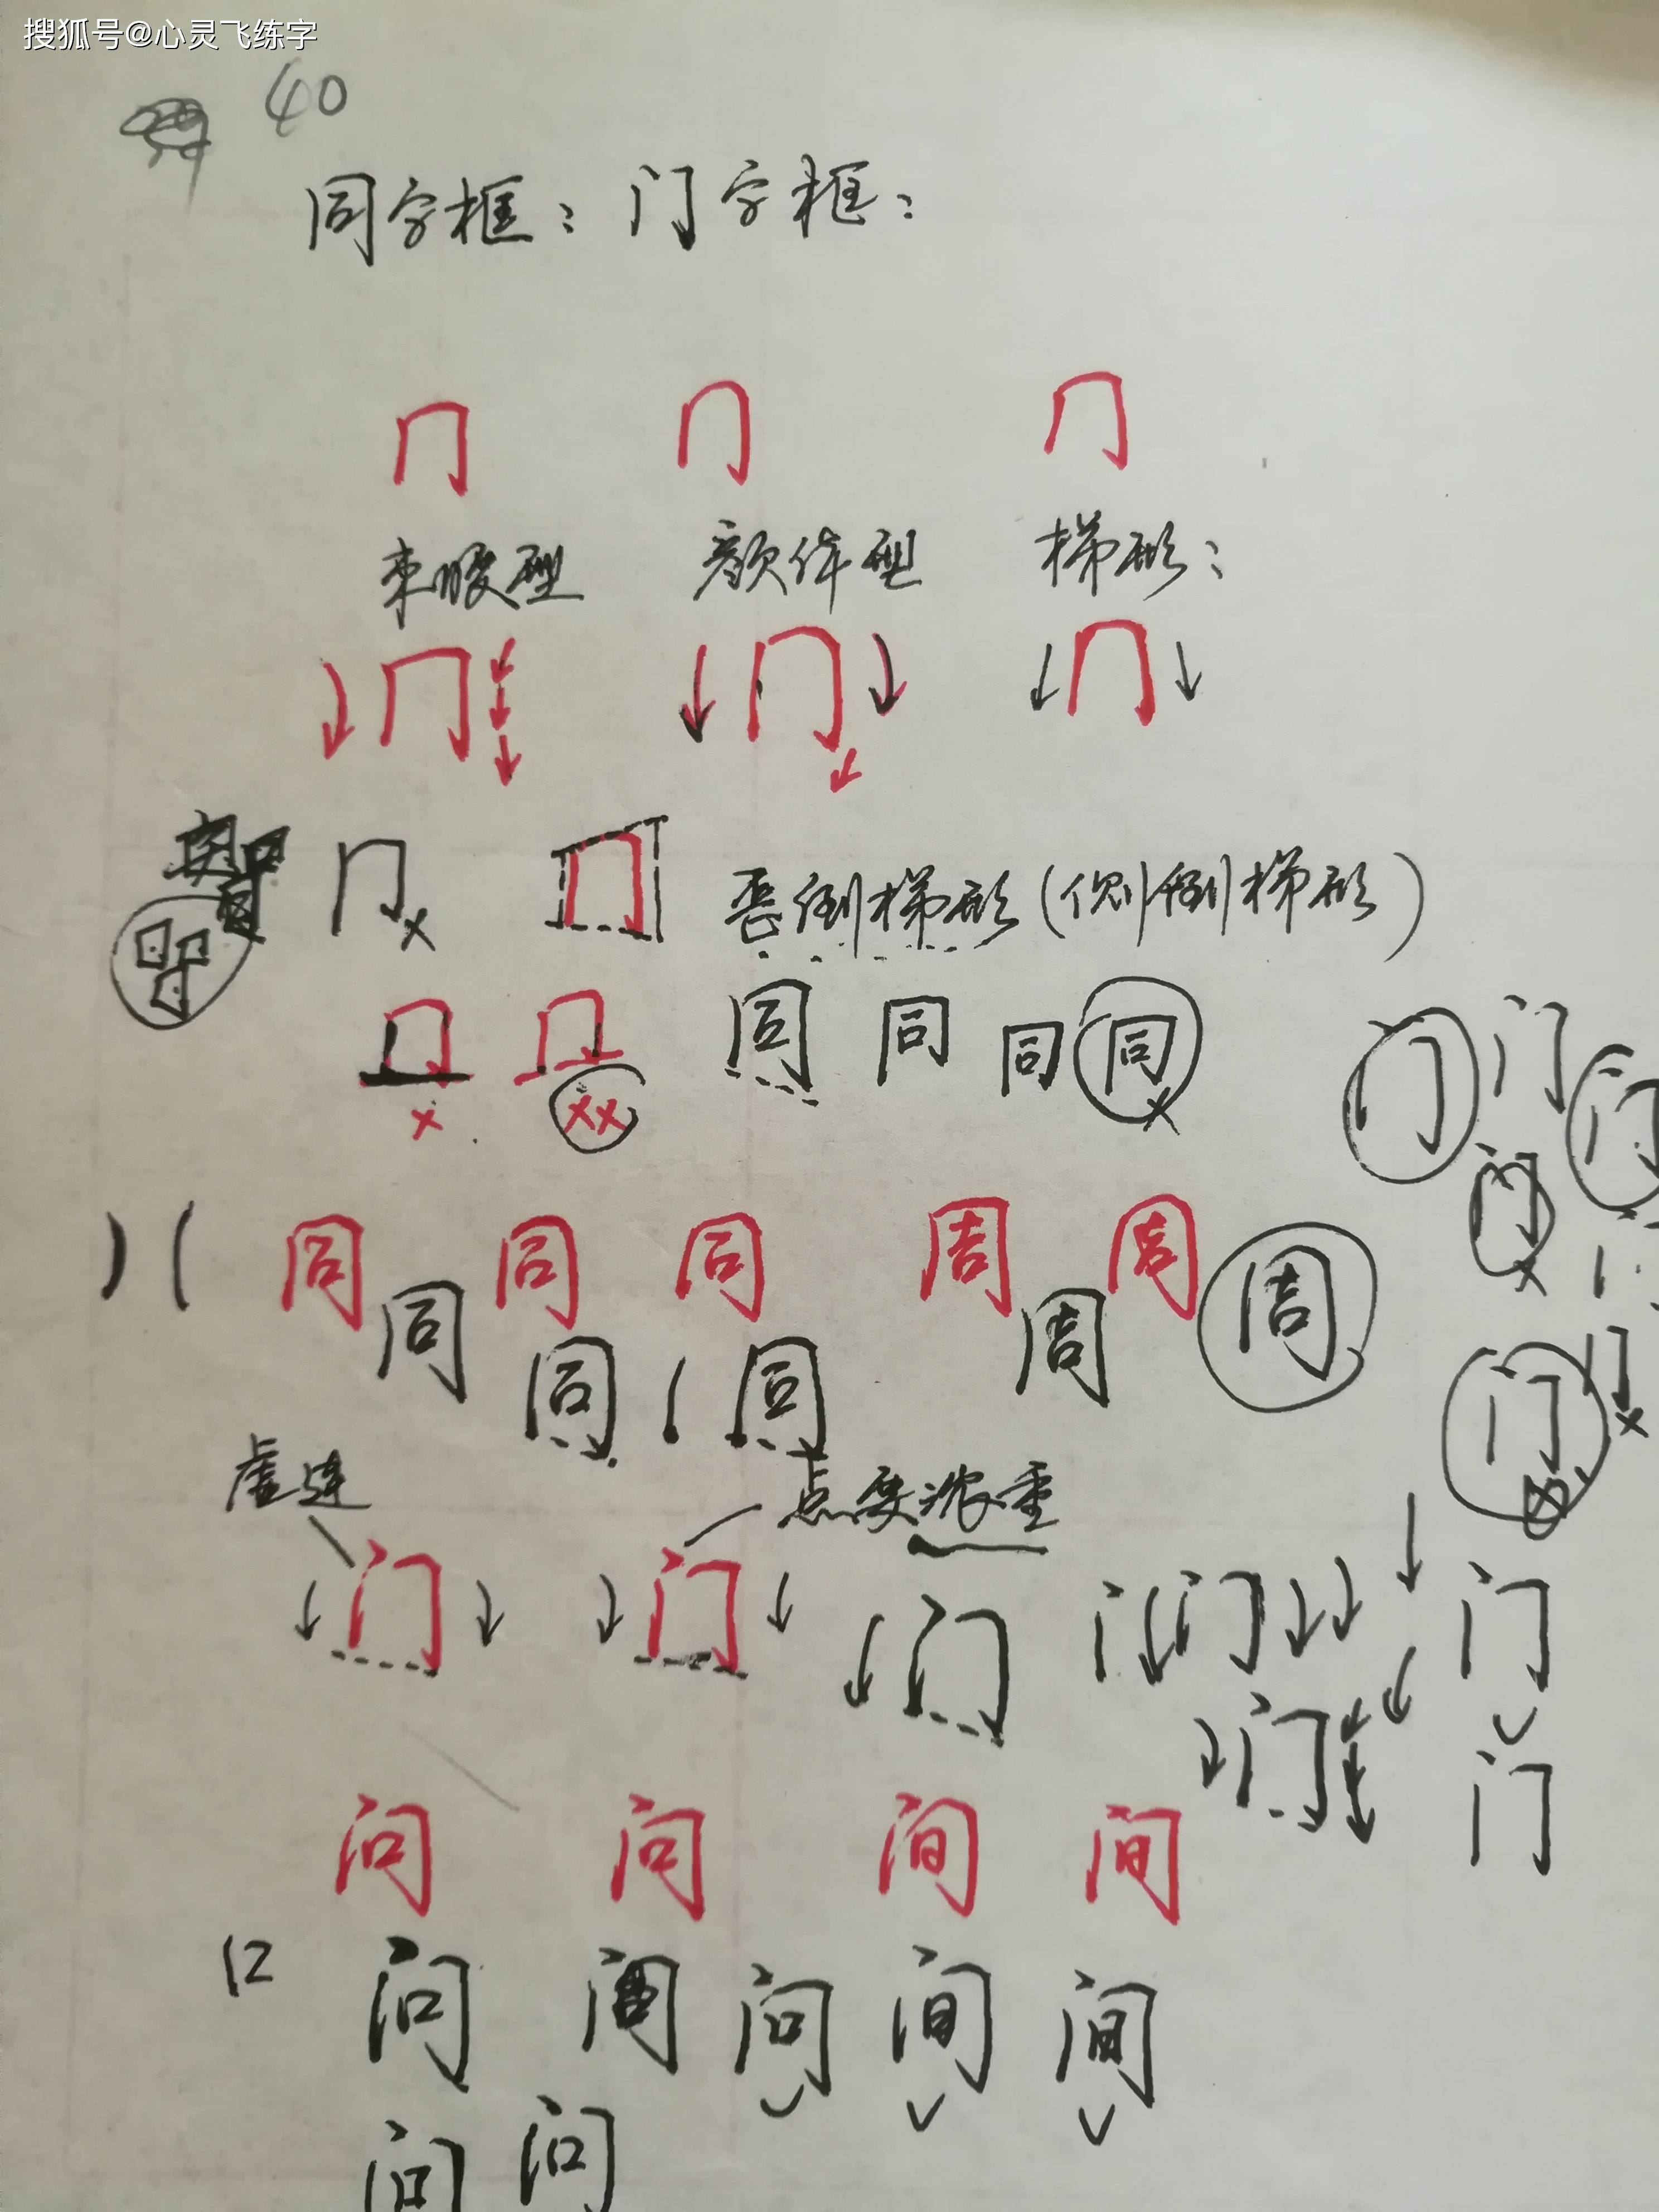 搜狐号@心灵飞练字
40
同字框：门字框：
冂 冂 冂
束腰型 颜体型 梯形：
冂 冂 冂
冂 冂 倒梯形（侧倒梯形）
同 同 同 同
门 门 门
同 同 同 周 周
同 同 同 周 周
虚连 点度浓重
门 门 门 门 门
门 门
问 问 间 间
口 问 问 间 间
问 问